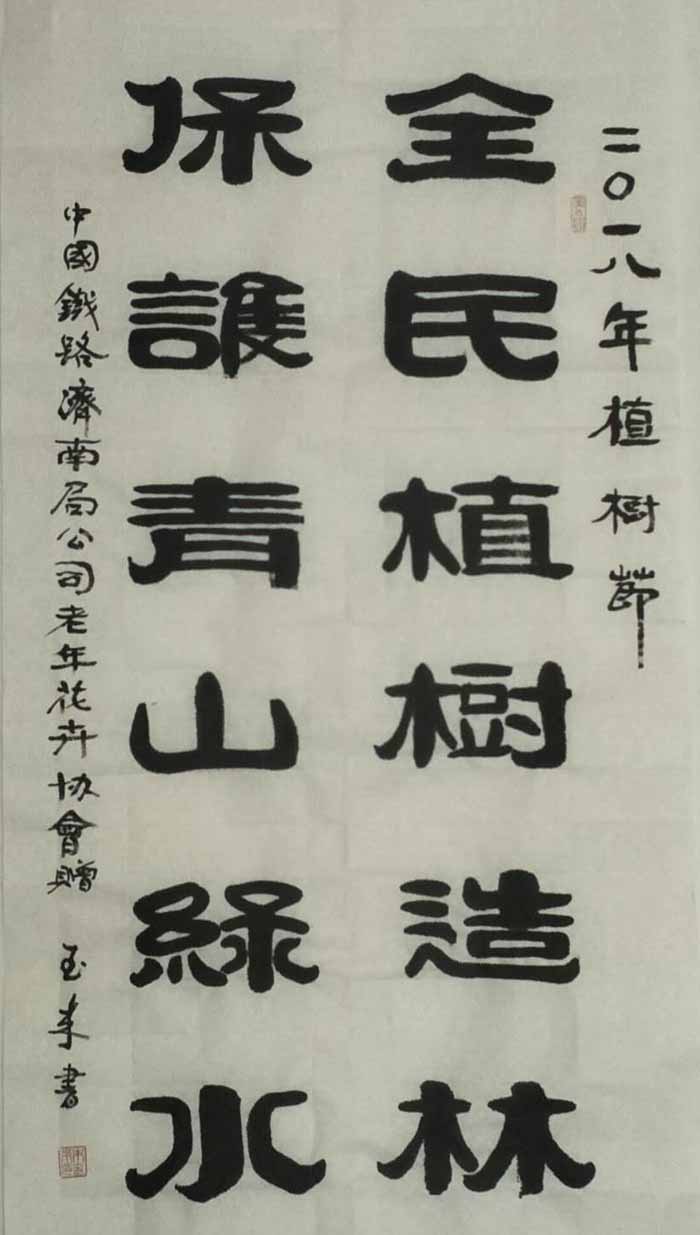 二〇一八年植樹節
全民植樹造林
保護青山綠水
中國鐵路濟南局公司老年花卉协會贈
玉来書